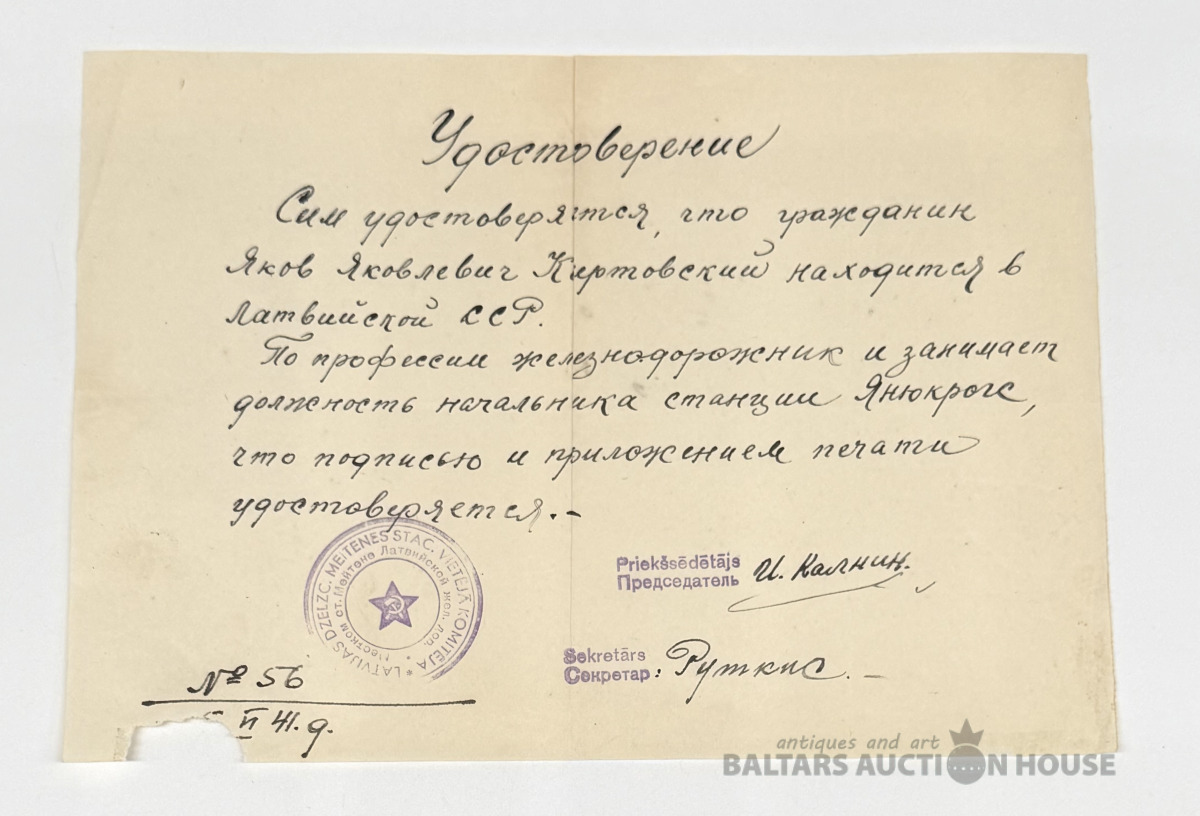 Удостоверение
Сим удостоверяется, что гражданин
Яков Яковлевич Киртовский находится в
Латвийской ССР.
По профессии железнодорожник и занимает
должность начальника станции Янюкрогс,
что подписью и приложением печати
удостоверяется.-
LATVIJAS DZELZC. MEITENES STAC. VIETEJĀ KOMITEJA *
Местком ст. Мейтене Латвийской жел. дор. *
Priekšsēdētājs
Председатель И. Калнин.
Sekretārs
Секретар: Руткис. -
№ 56
II 41. g.
antiques and art
BALTARS AUCTION HOUSE